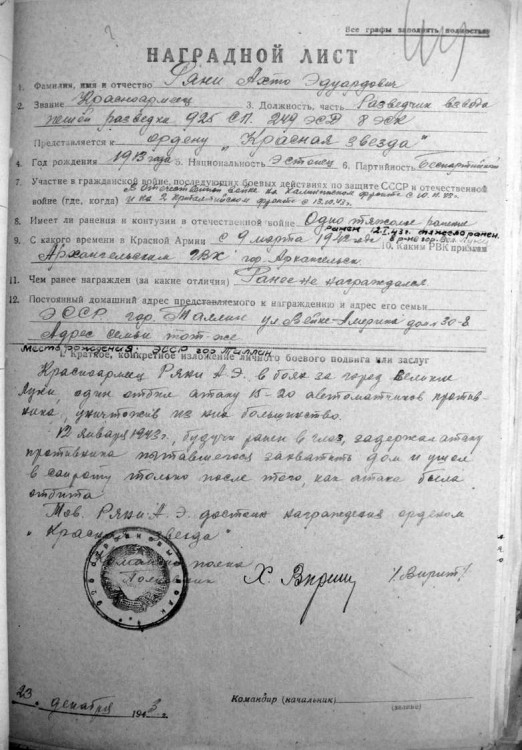 Все графы заполнять полностью
НАГРАДНОЙ ЛИСТ
1. Фамилия, имя и отчество Ряни Ахто Эдуардович
2. Звание Красноармеец 3. Должность, часть Разведчик взвода
пешей разведки 925 СП. 249 ЭСД 8 ЭСК
Представляется к ордену "Красная звезда"
4. Год рождения 1913 года 5. Национальность Эстонец 6. Партийность Беспартийный
7. Участие в гражданской войне, последующих боевых действиях по защите СССР и отечественной
В отечественной войне на Калининском фронте с
войне (где, когда) и на 2 Прибалтийском фронте с
8. Имеет ли ранения и контузии в отечественной войне Одно тяжелое ранение
ранен 12.I.43г. тяжело ранен
9. С какого времени в Красной Армии с 9 марта 1942 года в р-не гор. Вел. Луки
10. Каким РВК призван
Архангельским ГВК гор. Архангельск
11. Чем ранее награжден (за какие отличия) Ранее не награждался
12. Постоянный домашний адрес представляемого к награждению и адрес его семьи
ЭССР гор. Таллин ул. Вейке-Америка дом 30-8
Адрес семьи тот-же
Место рождения: ЭССР гор Таллин
I. Краткое, конкретное изложение личного боевого подвига или заслуг
Красноармеец Ряни А.Э. в боях за город Великие
Луки, один отбил атаку 15-20 автоматчиков против-
ника, уничтожив из них большинство.
12 января 1943 г., будучи ранен в глаз, задержал атаку
противника пытавшегося захватить дом и ушел
в санроту только после того, как атака была
отбита
Тов. Ряни А.Э. достоин награждения орденом
"Красная звезда"
Командир полка
Полковник Х. Вирит /Вирит/
23 декабря 1943 г.
Командир (начальник)